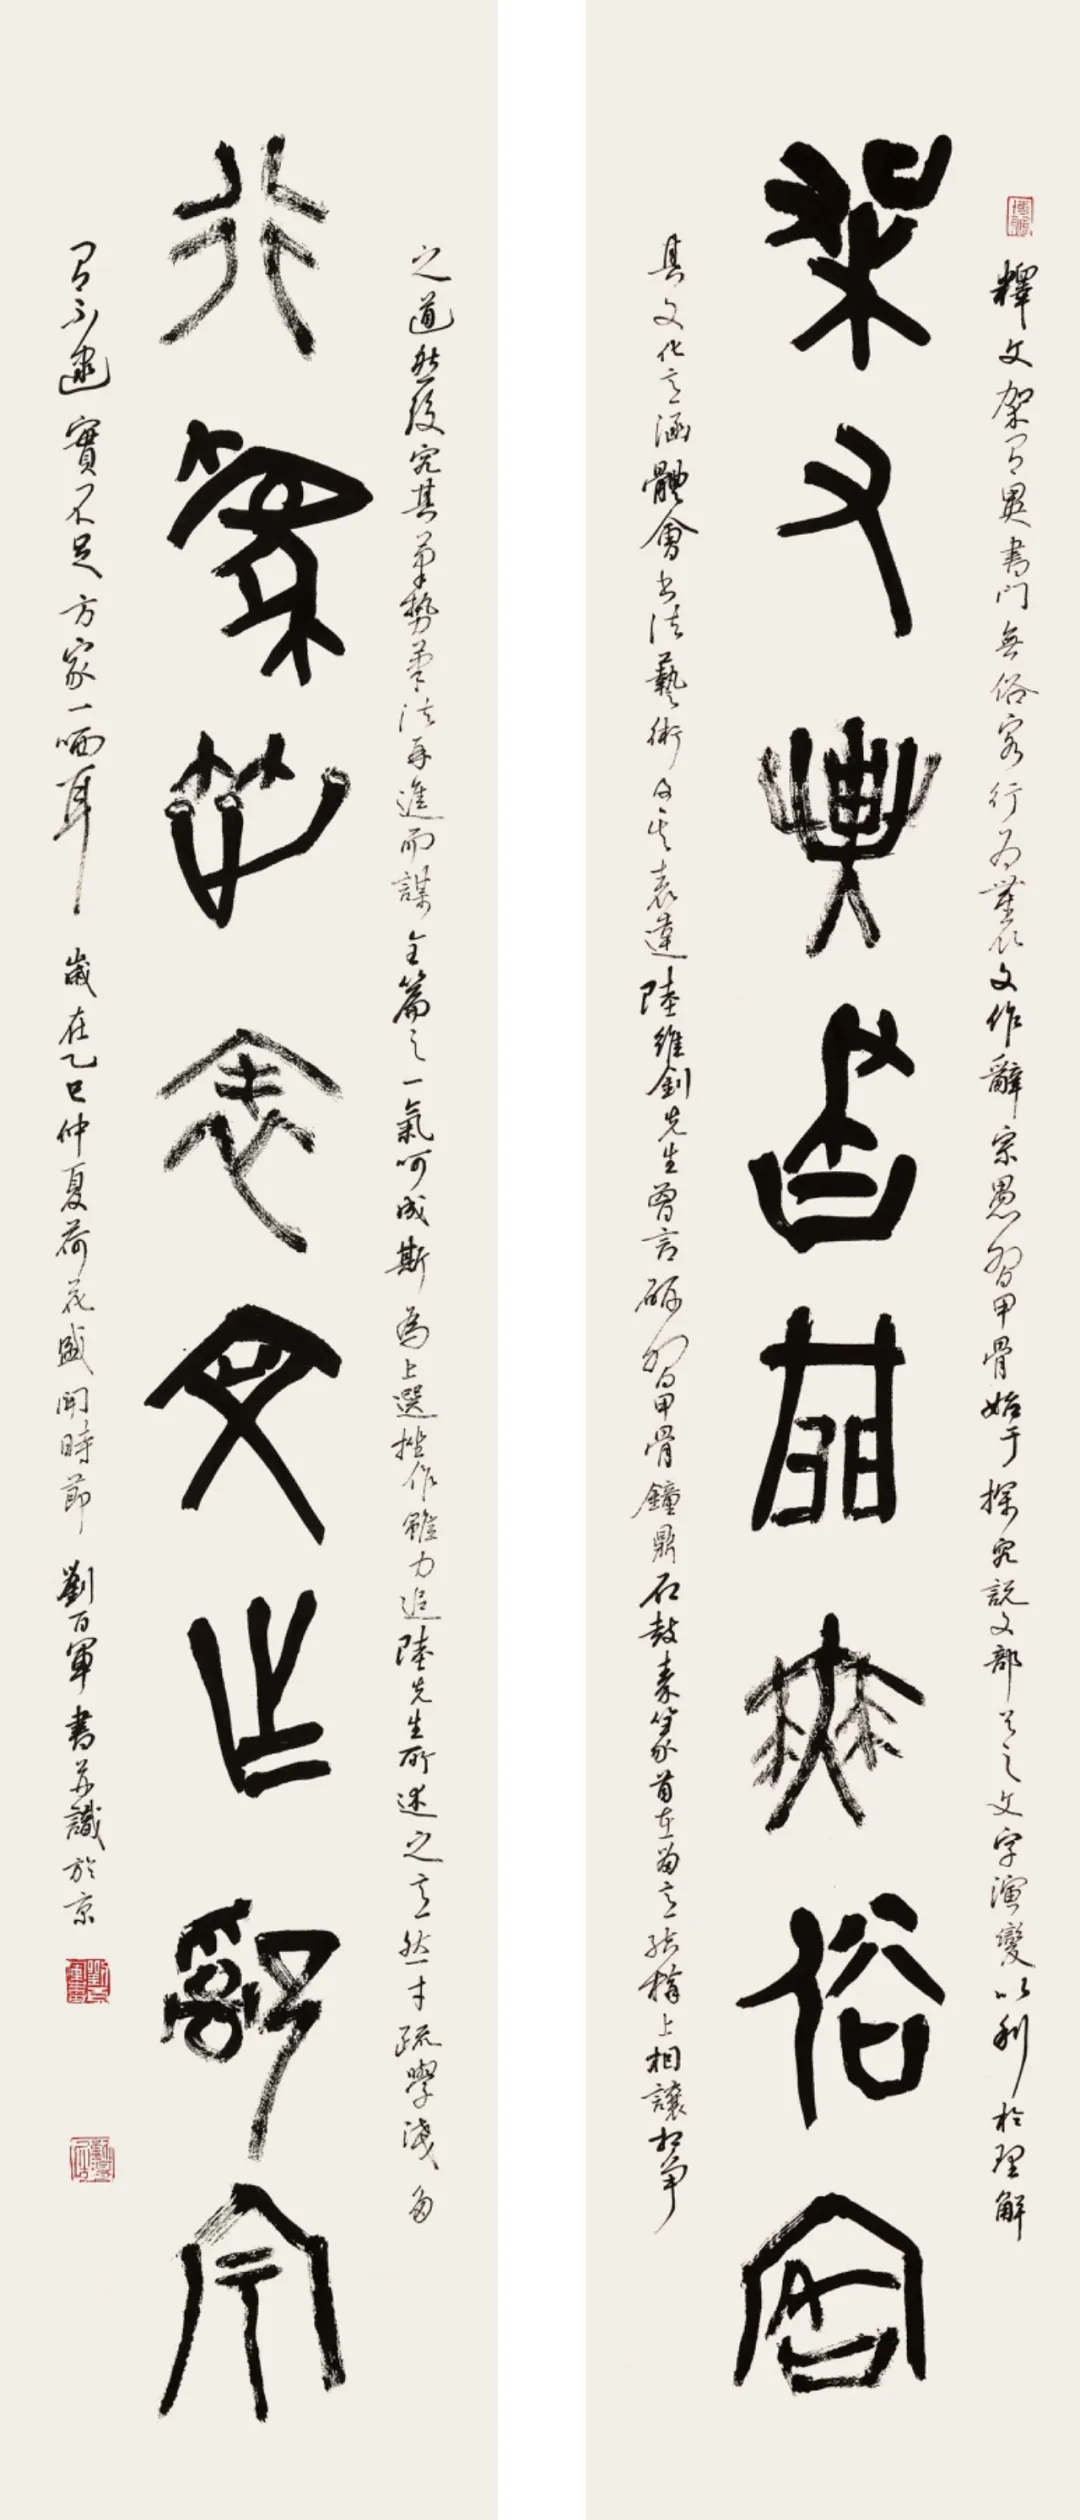 釋文架有異書門無俗客行为世表文作辭宗愚習甲骨始于探究説文部首之文字演變以利於理解
架有異書門無俗客
其文化意涵體會书法藝術及其表達陸維釗先生曾言研習甲骨鐘鼎石鼓秦篆首在留意結構上相讓相争
之道然後究其筆勢筆法再進而謀全篇之一氣呵成斯為上選拙作雖力追陸先生所述之意然才疏學淺多
行為世表文作辭宗
有不逮實不足方家一哂耳歲在乙巳仲夏荷花盛開時節劉百軍書并識於京